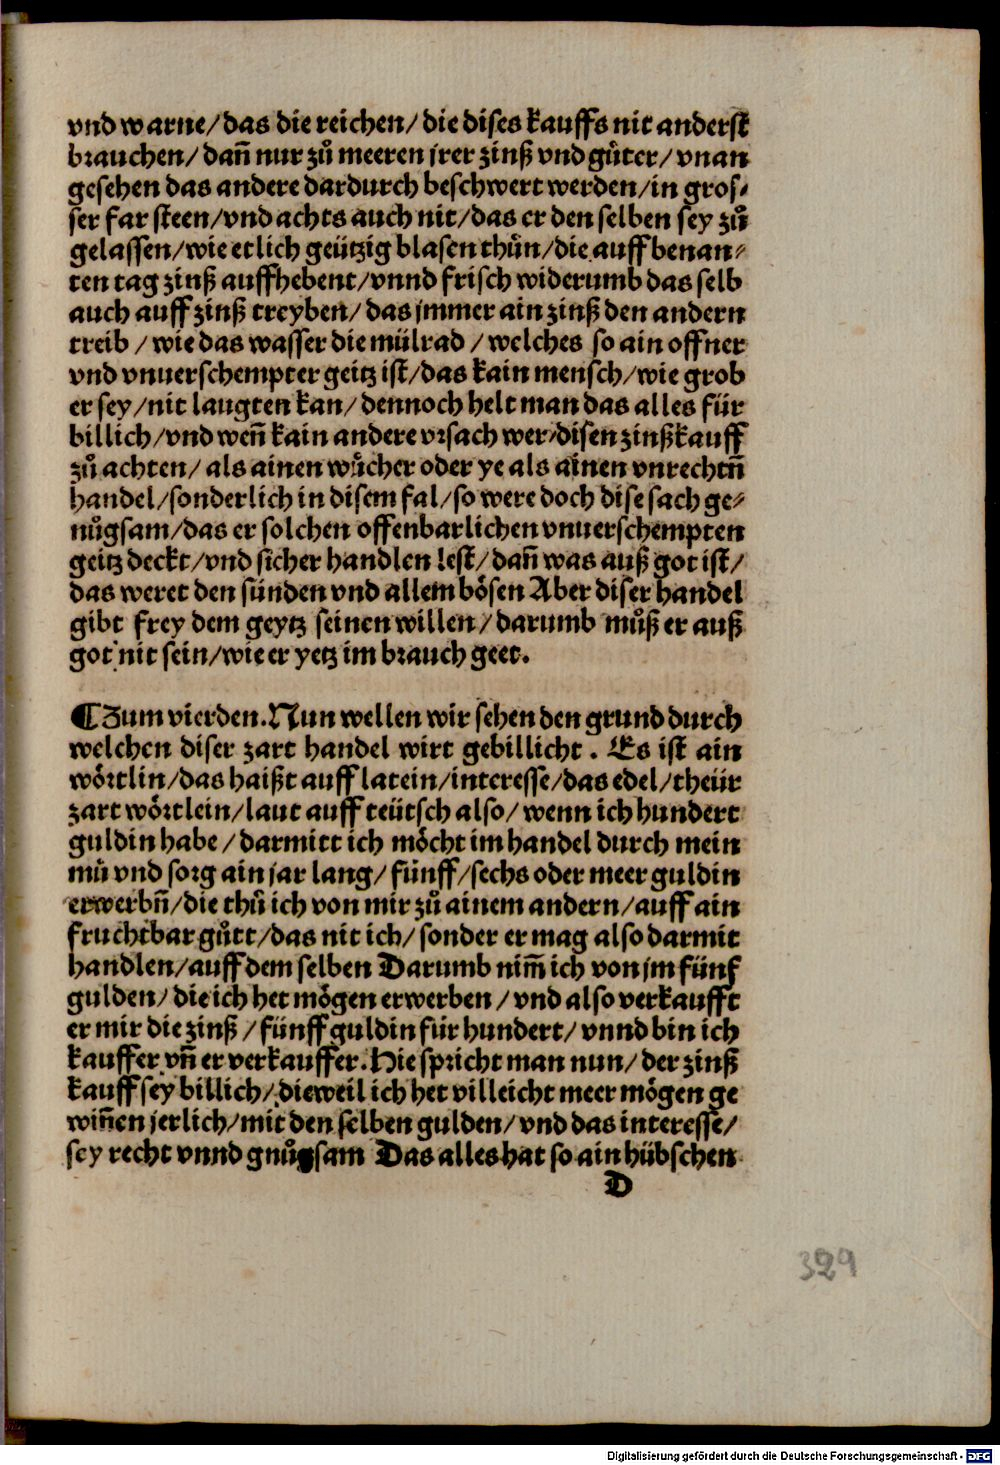 vnd warne/das die reichen/die dises kauffs nit anderst
brauchen/dañ nur zů meeren jrer zinß vnd gůter/vnan
gesehen das andere dardurch beschwert werden/in gros⸗
ser far steen/vnd achts auch nit/das er den selben sey zů
gelassen/wie etlich geützig blasen thůn/die auff benan⸗
ten tag zinß auffhebent/vnnd frisch widerumb das selb
auch auff zinß treyben/das jmmer ain zinß den andern
treib/wie das wasser die mülrad/welches so ain offner
vnd vnuerschempter geitz ist/das kain mensch/wie grob
er sey/nit laugten kan/dennoch helt man das alles für
billich/vnd weñ kain andere vrsach wer/disen zinßkauff
zů achten/als ainen wůcher oder ye als ainen vnrechtñ
handel/sonderlich in disem fal/so were doch dise sach ge⸗
nůgsam/das er solchen offenbarlichen vnuerschempten
geitz deckt/vnd sicher handlen lest/dañ was auß got ist/
das weret den sünden vnd allem bösen Aber diser handel
gibt frey dem geytz seinen willen/darumb můß er auß
got nit sein/wie er yetz im brauch geet.
¶Zum vierden.Nun wellen wir sehen den grund durch
welchen diser zart handel wirt gebillicht. Es ist ain
wörtlin/das haißt auff latein/interesse/das edel/theür
zart wörtlein/laut auff teütsch also/wenn ich hundert
guldin habe/darmitt ich möcht im handel durch mein
mů vnd sorg ain jar lang/fünff/sechs oder meer guldin
erwerbñ/die thů ich von mir zů ainem andern/auff ain
fruchtbar gůtt/das nit ich/sonder er mag also darmit
handlen/auff dem selben Darumb nim̃ ich von jm fünf
gulden/die ich het mögen erwerben/vnd also verkaufft
er mir die zinß/fünff guldin für hundert/vnnd bin ich
kauffer vñ er verkauffer.Hie spricht man nun/der zinß
kauff sey billich/dieweil ich het villeicht meer mögen ge
wiñen jerlich/mit den selben gulden/vnd das interesse/
sey recht vnnd gnůgsam Das alles hat so ain hübschen
D
329
Digitalisierung gefördert durch die Deutsche Forschungsgemeinschaft - DFG